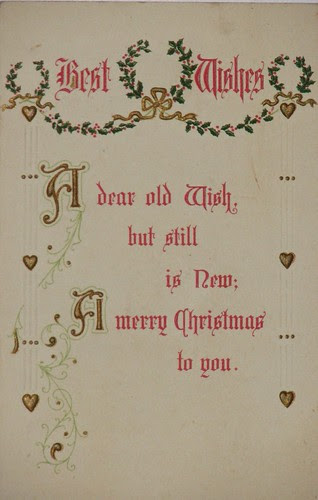 Best Wishes
A dear old Wish,
but still
is New;
A merry Christmas
to you.